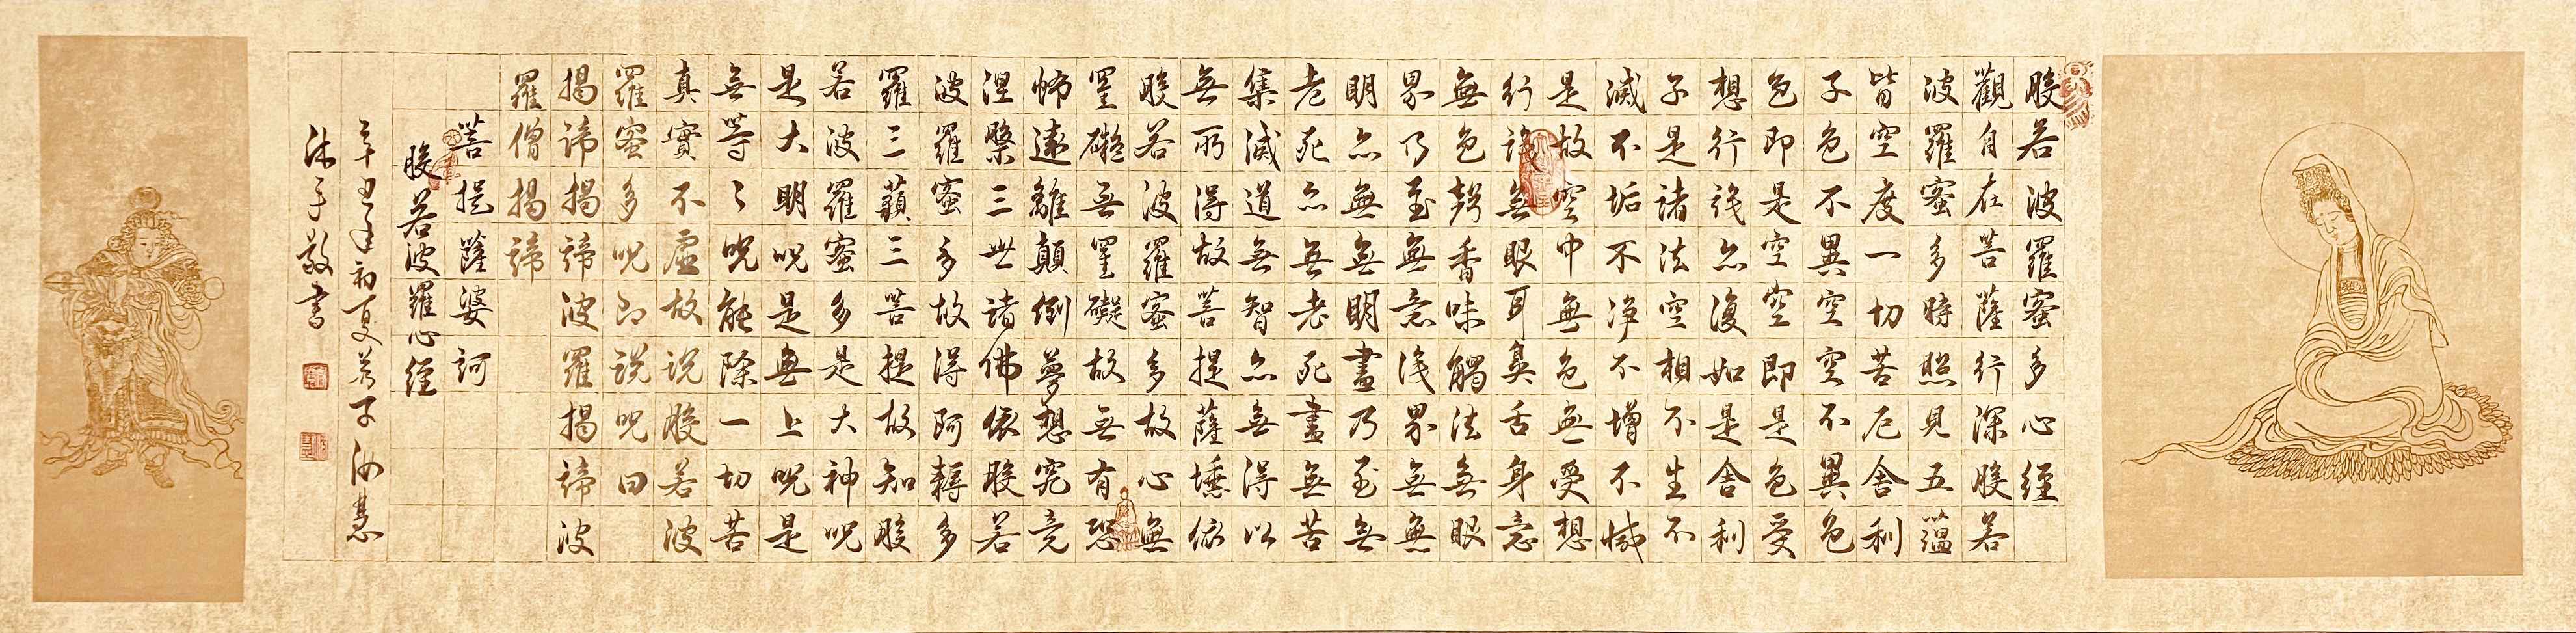 般若波羅蜜多心經
觀自在菩薩行深般若
波羅蜜多時照見五蘊
皆空度一切苦厄舍利
子色不異空空不異色
色即是空空即是色受
想行識亦復如是舍利
子是諸法空相不生不
滅不垢不淨不增不減
是故空中無色無受想
行識無眼耳鼻舌身意
無色聲香味觸法無眼
界乃至無意識界無無
明亦無無明盡乃至無
老死亦無老死盡無苦
集滅道無智亦無得以
無所得故菩提薩埵依
般若波羅蜜多故心無
罣礙無罣礙故無有恐
怖遠離顛倒夢想究竟
涅槃三世諸佛依般若
波羅蜜多故得阿耨多
羅三藐三菩提故知般
若波羅蜜多是大神咒
是大明咒是無上咒是
無等々咒能除一切苦
真實不虛故說般若波
羅蜜多咒即說咒曰
揭諦揭諦波羅揭諦波
羅僧揭諦
菩提薩婆訶
般若波羅心經
辛丑年初夏弟子汝慧
沐手敬書